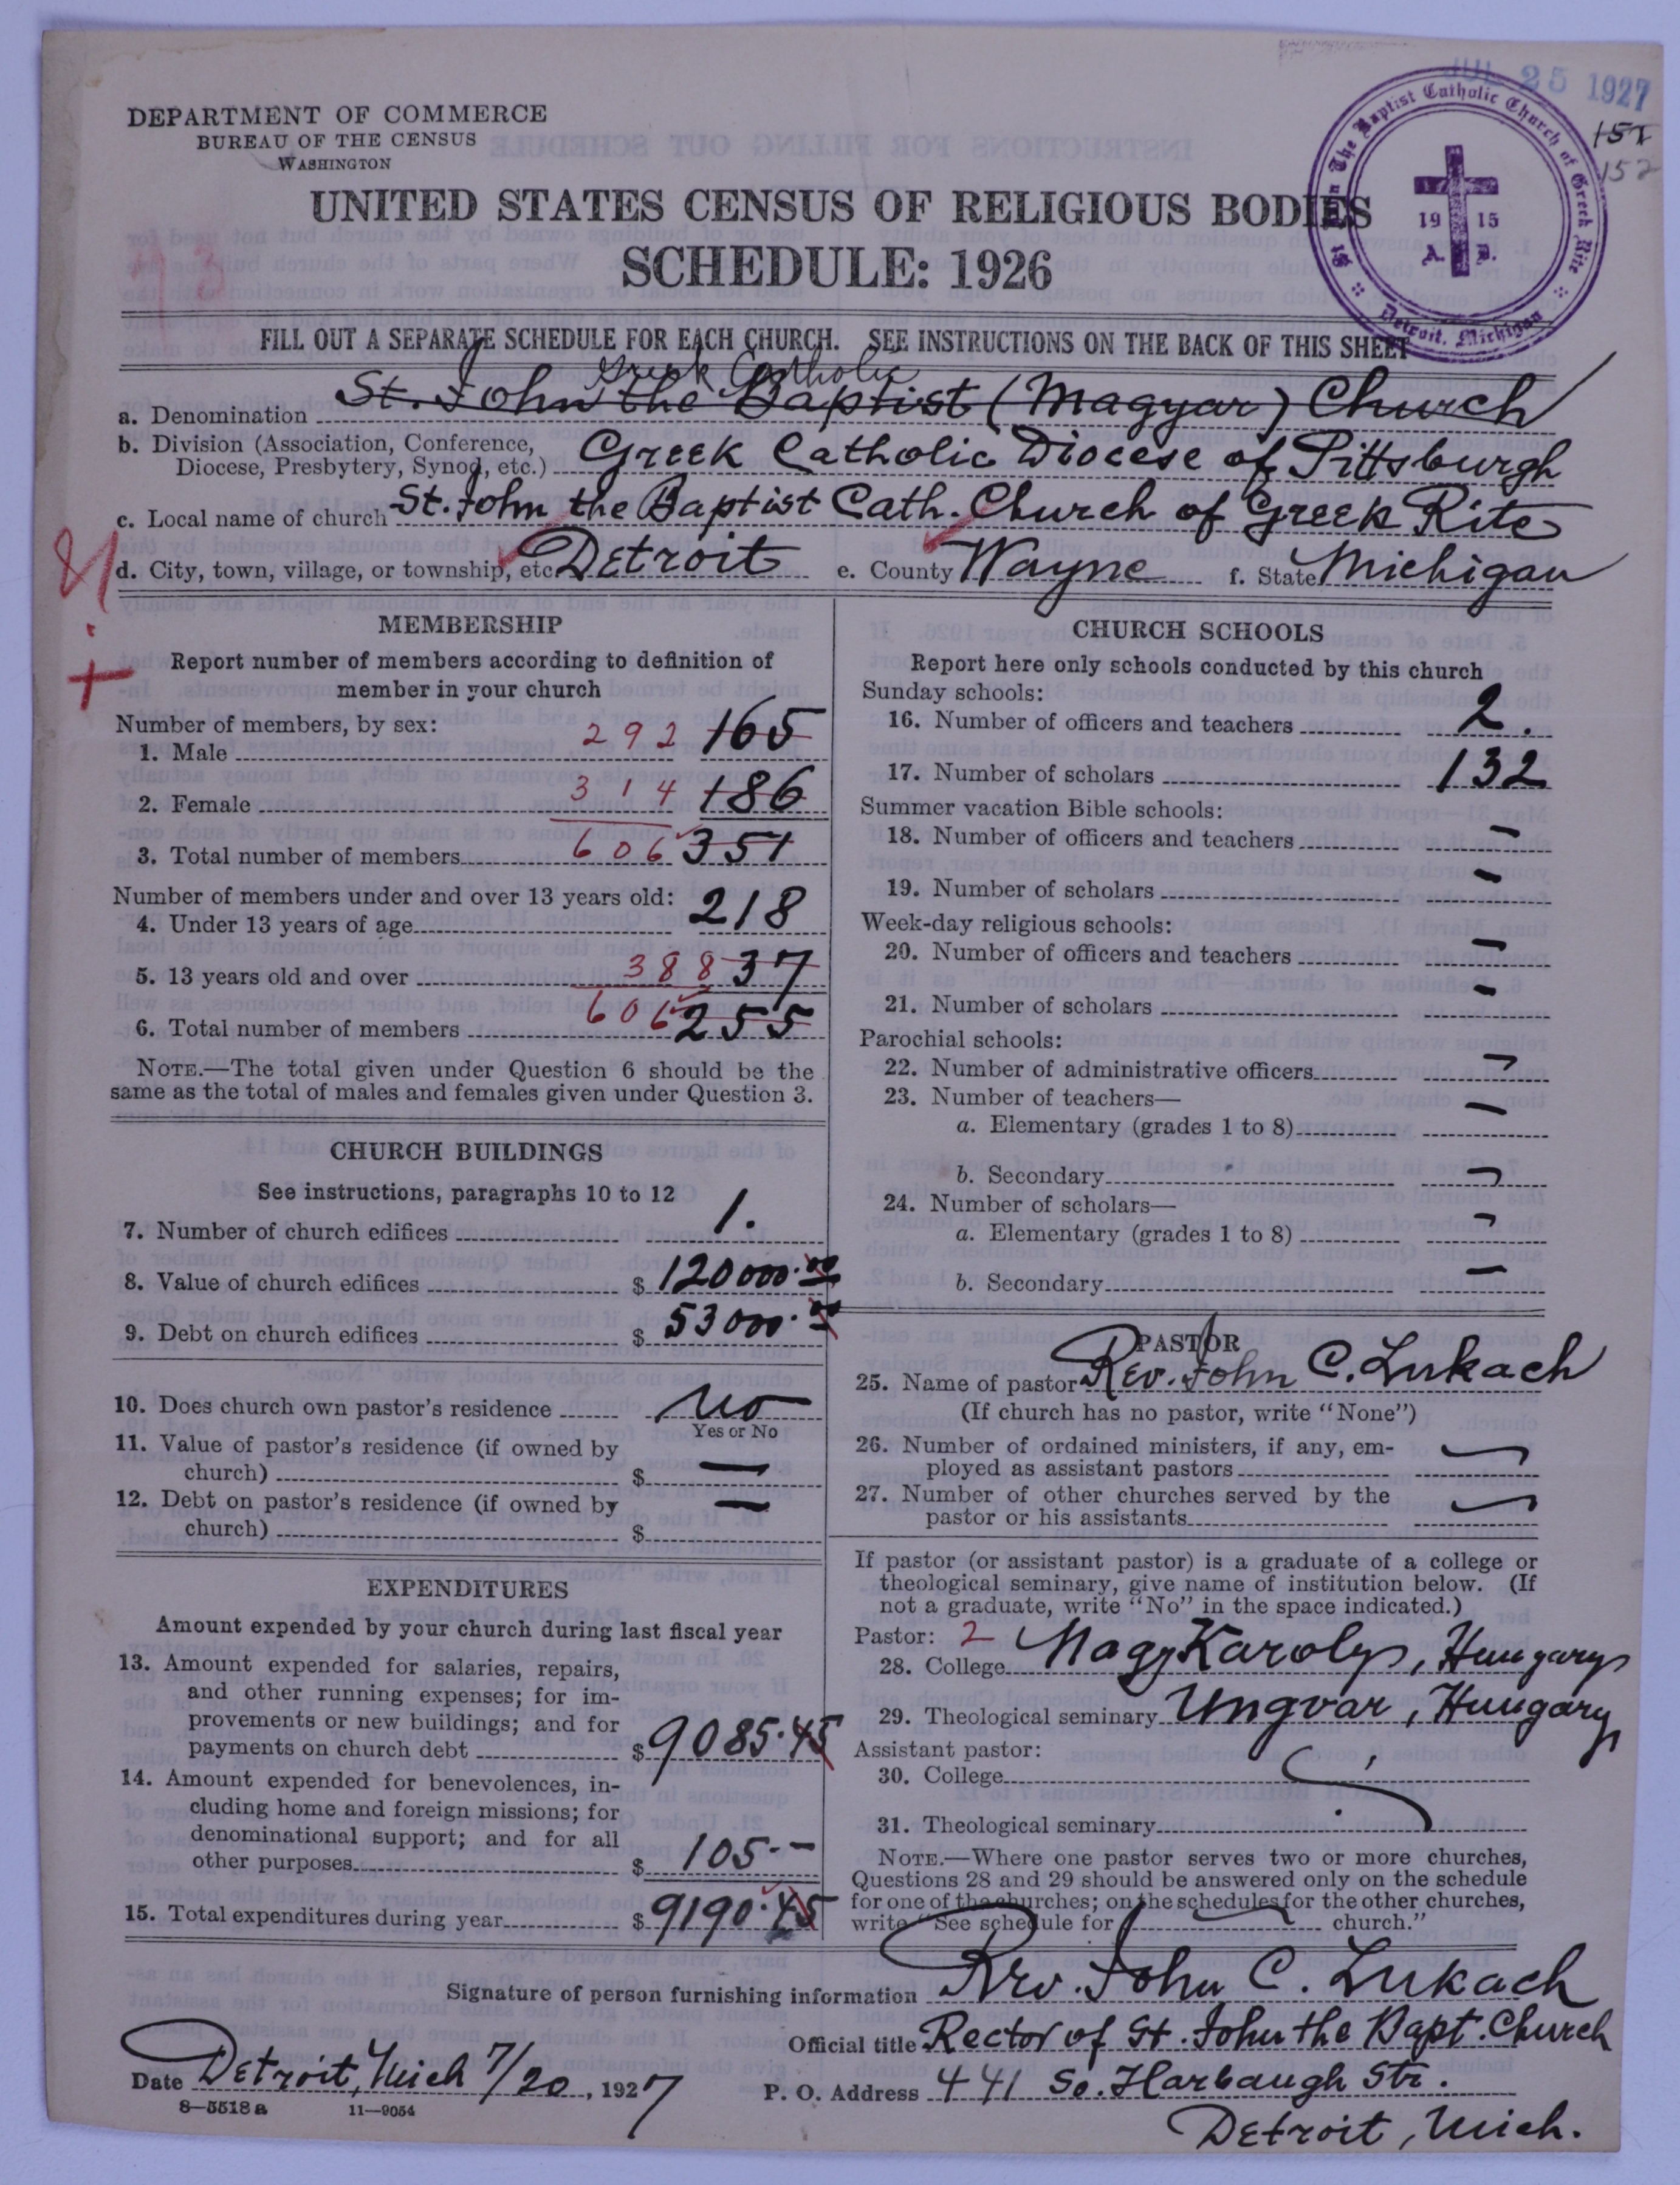 JUL 25 1927
151
152
St. John The Baptist Catholic Church of Greek Rite
Detroit, Michigan
19 15
A. D.
DEPARTMENT OF COMMERCE
BUREAU OF THE CENSUS
WASHINGTON
UNITED STATES CENSUS OF RELIGIOUS BODIES
SCHEDULE: 1926
FILL OUT A SEPARATE SCHEDULE FOR EACH CHURCH. SEE INSTRUCTIONS ON THE BACK OF THIS SHEET
Greek Catholic
a. Denomination St. John the Baptist (Magyar) Church
b. Division (Association, Conference,
Diocese, Presbytery, Synod, etc.) Greek Catholic Diocese of Pittsburgh
c. Local name of church St. John the Baptist Cath. Church of Greek Rite
d. City, town, village, or township, etc. Detroit e. County Wayne f. State Michigan
MEMBERSHIP
Report number of members according to definition of
member in your church
Number of members, by sex:
1. Male 292 165
2. Female 314 186
3. Total number of members 606 351
Number of members under and over 13 years old:
4. Under 13 years of age 218
5. 13 years old and over 388 37
6. Total number of members 606 255
NOTE.—The total given under Question 6 should be the
same as the total of males and females given under Question 3.
CHURCH BUILDINGS
See instructions, paragraphs 10 to 12
7. Number of church edifices 1.
8. Value of church edifices $ 120000.00
9. Debt on church edifices $ 53000.00
10. Does church own pastor's residence No
Yes or No
11. Value of pastor's residence (if owned by
church) $ —
12. Debt on pastor's residence (if owned by
church) $ —
EXPENDITURES
Amount expended by your church during last fiscal year
13. Amount expended for salaries, repairs,
and other running expenses; for im-
provements or new buildings; and for
payments on church debt $ 9085.45
14. Amount expended for benevolences, in-
cluding home and foreign missions; for
denominational support; and for all
other purposes $ 105.-
15. Total expenditures during year $ 9190.45
CHURCH SCHOOLS
Report here only schools conducted by this church
Sunday schools:
16. Number of officers and teachers 2.
17. Number of scholars 132
Summer vacation Bible schools:
18. Number of officers and teachers —
19. Number of scholars —
Week-day religious schools:
20. Number of officers and teachers —
21. Number of scholars —
Parochial schools:
22. Number of administrative officers —
23. Number of teachers—
a. Elementary (grades 1 to 8) —
b. Secondary —
24. Number of scholars—
a. Elementary (grades 1 to 8) —
b. Secondary —
PASTOR
25. Name of pastor Rev. John C. Lukach
(If church has no pastor, write "None")
26. Number of ordained ministers, if any, em-
ployed as assistant pastors —
27. Number of other churches served by the
pastor or his assistants —
If pastor (or assistant pastor) is a graduate of a college or
theological seminary, give name of institution below. (If
not a graduate, write "No" in the space indicated.)
Pastor: 2
28. College Nagy Karoly, Hungary
29. Theological seminary Ungvar, Hungary
Assistant pastor:
30. College
31. Theological seminary
NOTE.—Where one pastor serves two or more churches,
Questions 28 and 29 should be answered only on the schedule
for one of the churches; on the schedules for the other churches,
write "See schedule for — church."
Signature of person furnishing information Rev. John C. Lukach
Official title Rector of St. John the Bapt. Church
Date Detroit, Mich 7/20, 1927 P. O. Address 441 So. Harbaugh Str.
Detroit, Mich.
8—5518 a 11—9054